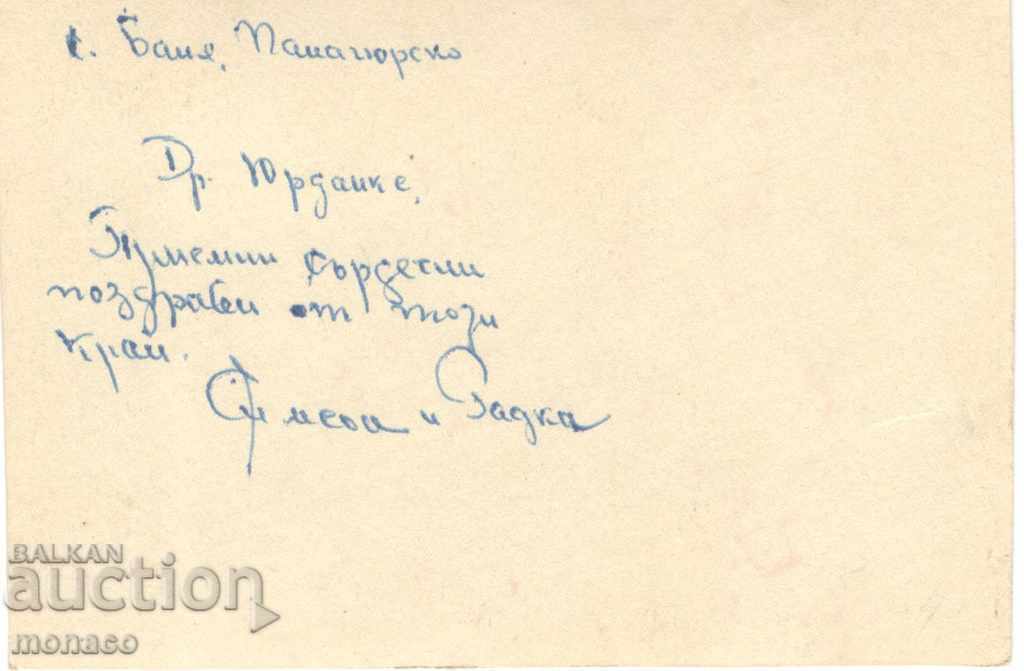 с. Баня, Панагюрско
Др. Юрданке,
Приемни сърдечни
поздрави от този
край.
Симеон и Радка
BALKAN
auction
monaco